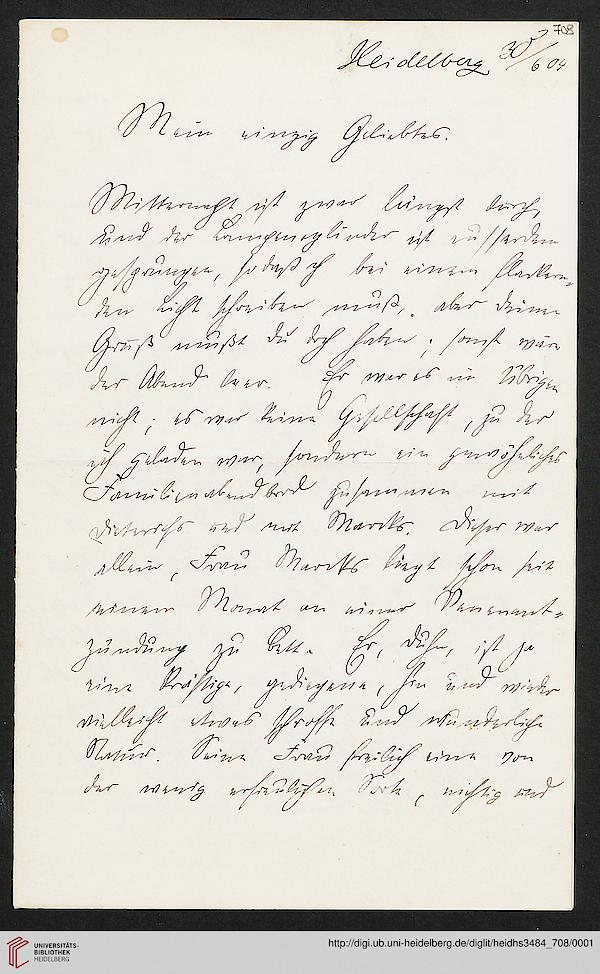 708
Heidelberg 30/6 04
Mein einzig Geliebtes.
Mitternacht ist zwar längst durch,
und der Lampencylinder ist ausserdem
gesprungen, so daß ich bei einem flackern-
den Licht schreiben muß, aber deinen
Gruß mußt du doch haben; sonst wäre
der Abend leer. Er war es im Übrigen
nicht; es war keine Gesellschaft, zu der
ich geladen war, sondern ein gewöhnliches
Familienabendbrod zusammen mit
Dieterichs und mit Marcks. Dieser war
allein, Frau Marcks liegt schon seit
einem Monat an einer Venenent-
zündung zu Bett. Er, Duhn, ist ja
eine kräftige, gediegene, hin und wieder
vielleicht etwas schroffe und wunderliche
Natur. Seine Frau freilich eine von
der wenig erfreulichen Sorte, nichtig und
UNIVERSITÄTS-
BIBLIOTHEK
HEIDELBERG
http://digi.ub.uni-heidelberg.de/diglit/heidhs3484_708/0001